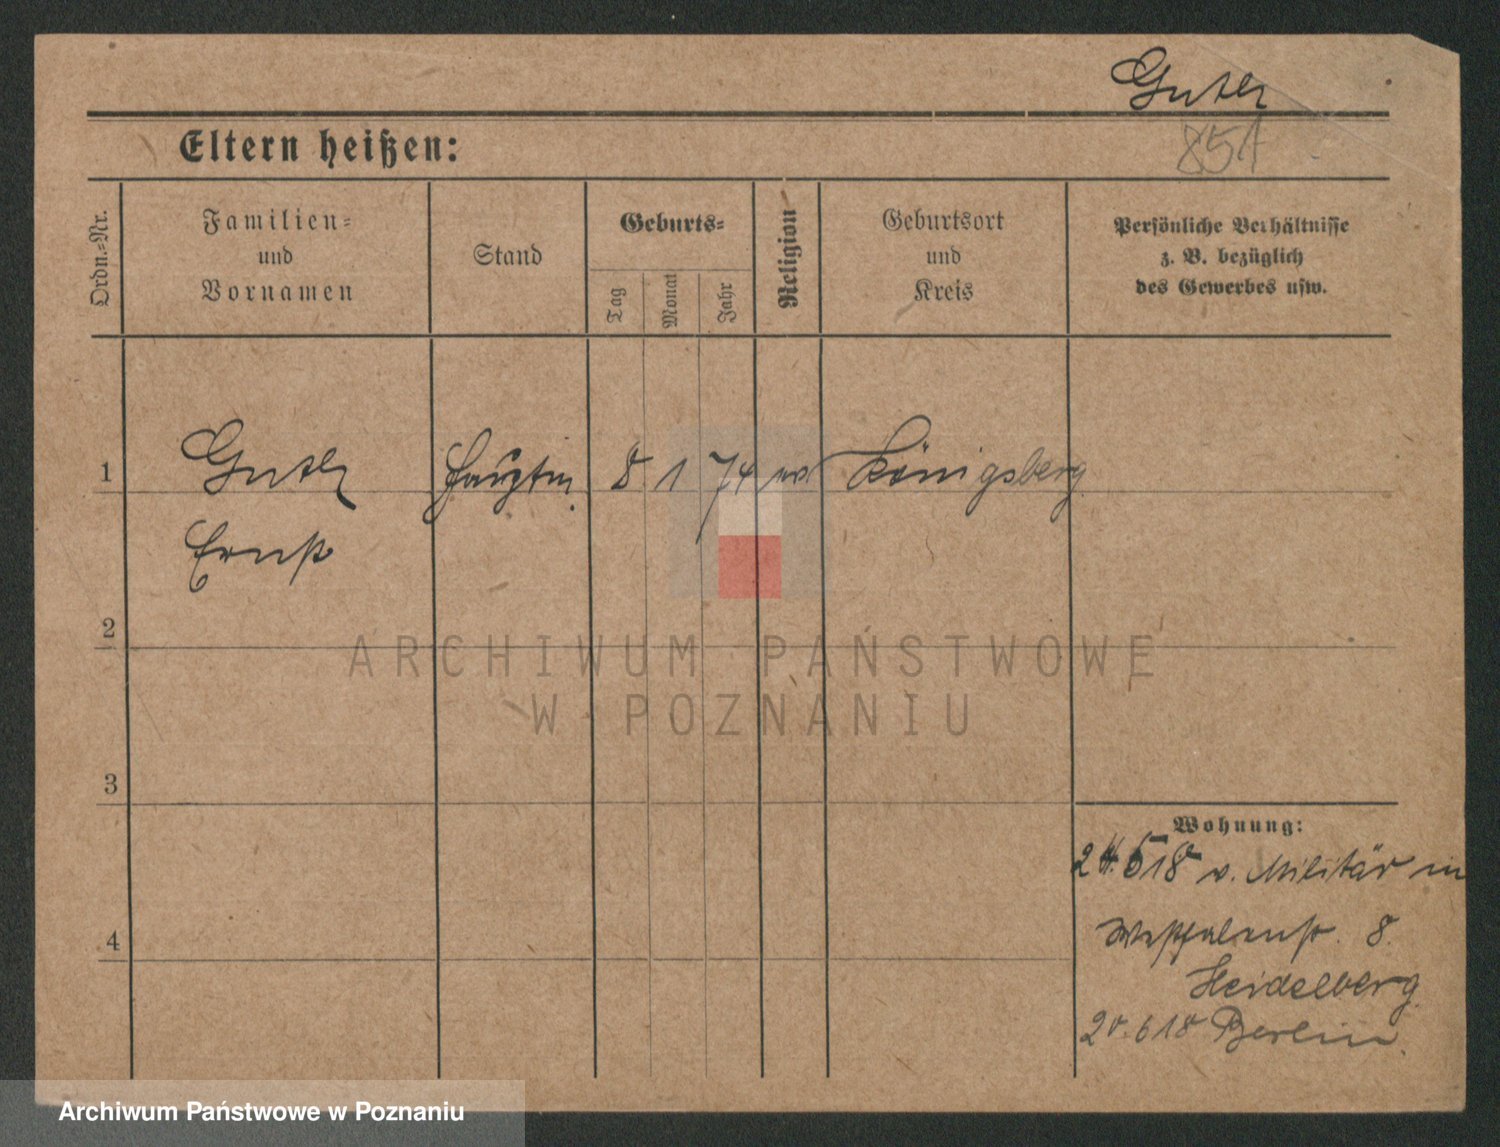 Guth
851
Eltern heißen:
Ordn.-Nr.
Familien-
und
Vornamen
Stand
Geburts-
Tag
Monat
Jahr
Religion
Geburtsort
und
Kreis
Persönliche Verhältnisse
z. B. bezüglich
des Gewerbes usw.
1 Guth Hauptm. 8 1 74 ev. Königsberg
Ernst
2
3
4
Wohnung:
24.518 v. Militär in
Westfalenst. 8.
Heidelberg
618 Berlin.
ARCHIWUM PAŃSTWOWE
W POZNANIU
Archiwum Państwowe w Poznaniu